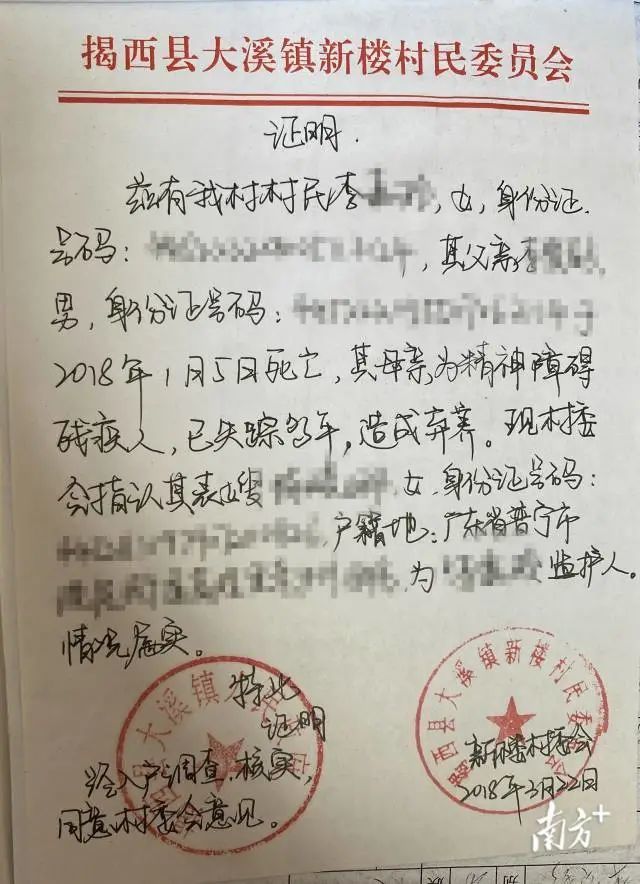 揭西县大溪镇新楼村民委员会
证明.
兹有我村村民李 ,女,身份证
号码: ,其父亲李
男,身份证号码:
2018年1月5日死亡,其母亲为精神障碍
残疾人,已失踪多年,造成弃养。现村委
会指认其表嫂 女,身份证号码:
户籍地:广东省普宁市
为 监护人。
情况属实。
特此
证明
经入户调查,核实,
同意村委会意见。
揭西县大溪镇
揭西县大溪镇新楼村民委员会
新楼村委会
2018年3月22日
南方+